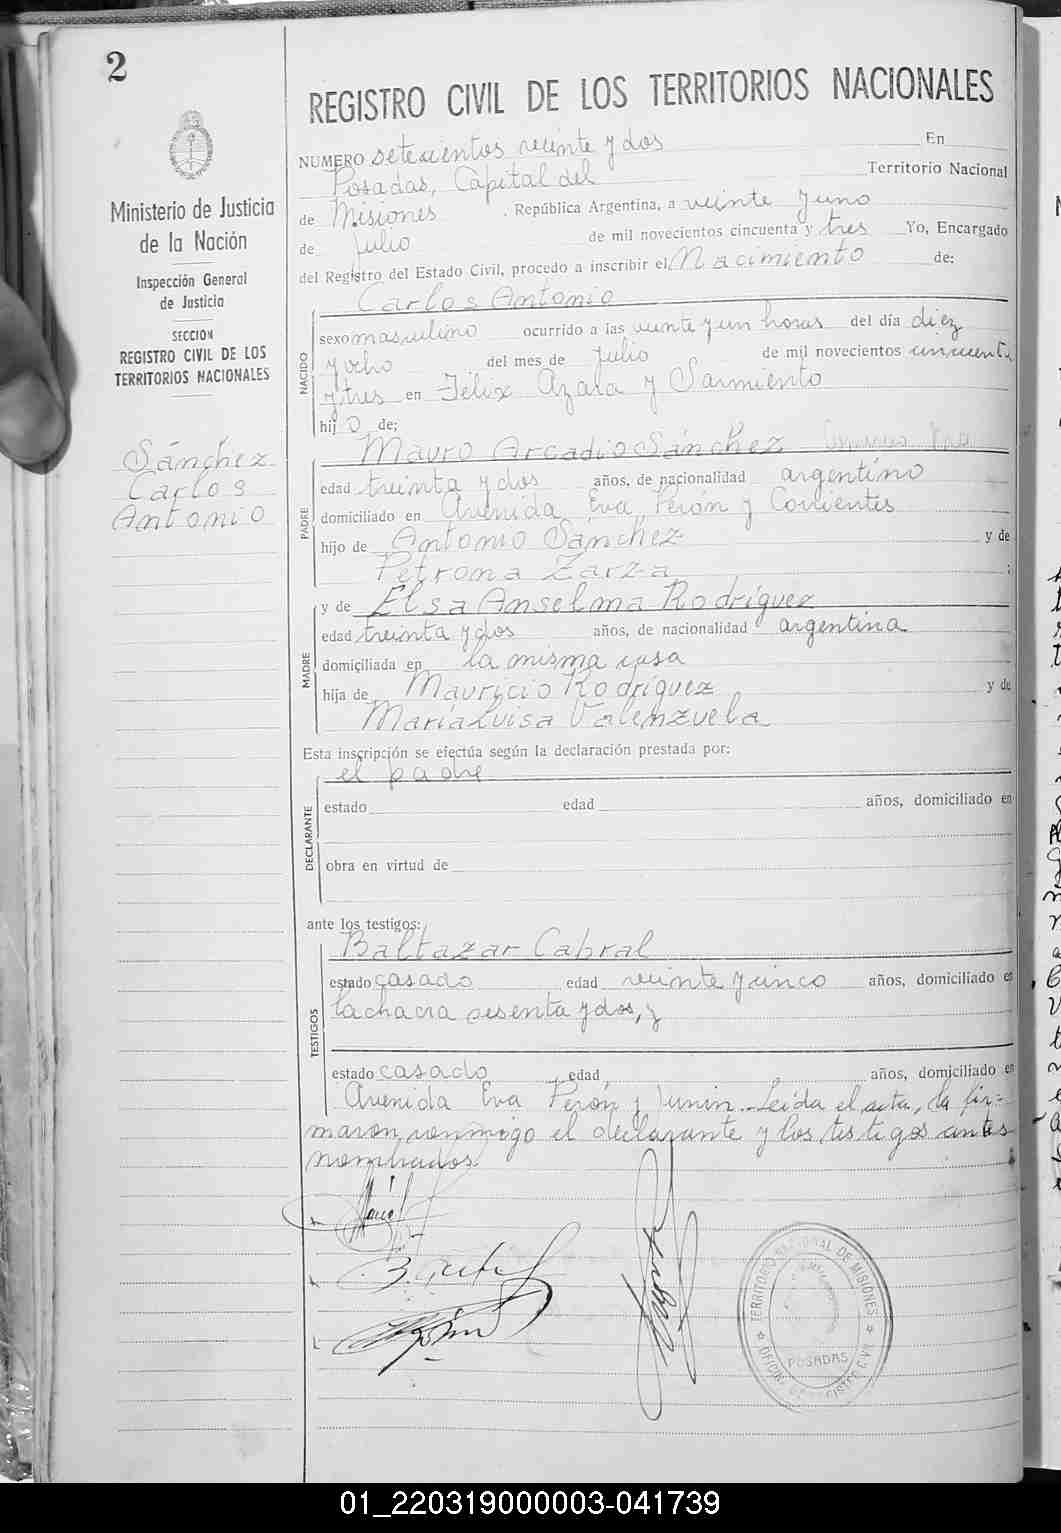 2
REGISTRO CIVIL DE LOS TERRITORIOS NACIONALES
Ministerio de Justicia
de la Nación
Inspección General
de Justicia
SECCION
REGISTRO CIVIL DE LOS
TERRITORIOS NACIONALES
Sánchez
Carlos
Antonio
NUMERO setecientos veinte y dos En
Posadas, Capital del Territorio Nacional
de Misiones, República Argentina, a veinte y uno
de julio de mil novecientos cincuenta y tres Yo, Encargado
del Registro del Estado Civil, procedo a inscribir el Nacimiento de:
NACIDO
Carlos Antonio
sexo masculino ocurrido a las veinte y un horas del día diez
y ocho del mes de julio de mil novecientos cincuenta
y tres en Félix Azara y Sarmiento
hijo de;
PADRE
Mauro Arcadio Sánchez
edad treinta y dos años, de nacionalidad argentino
domiciliado en Avenida Eva Perón y Corrientes
hijo de Antonio Sánchez y de
Petrona Zarza ;
MADRE
y de Elsa Anselma Rodríguez
edad treinta y dos años, de nacionalidad argentina
domiciliada en la misma casa
hija de Mauricio Rodríguez y de
María Luisa Valenzuela
Esta inscripción se efectúa según la declaración prestada por:
DECLARANTE
el padre
estado edad años, domiciliado en
obra en virtud de
ante los testigos:
TESTIGOS
Baltazar Cabral
estado casado edad veinte y cinco años, domiciliado en
la chacra sesenta y dos, y
estado casado edad años, domiciliado en
Avenida Eva Perón y Junín. Leída el acta, la fir=
maron conmigo el declarante y los testigos antes
nombrados
TERRITORIO NACIONAL DE MISIONES
POSADAS
01_220319000003-041739